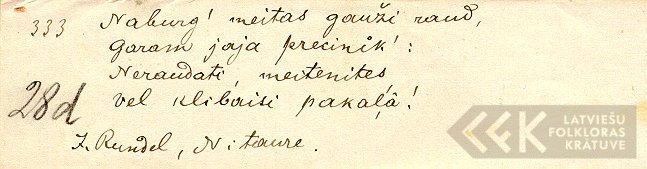 333 Naburg' meitas gauži raud,
Garam jāja precinik':
Neraudati, meitenites,
28d vel klibaisi pakaļâ!
J. Rundel, Nitaure.
LATVIEŠU
FOLKLORAS
KRĀTUVE